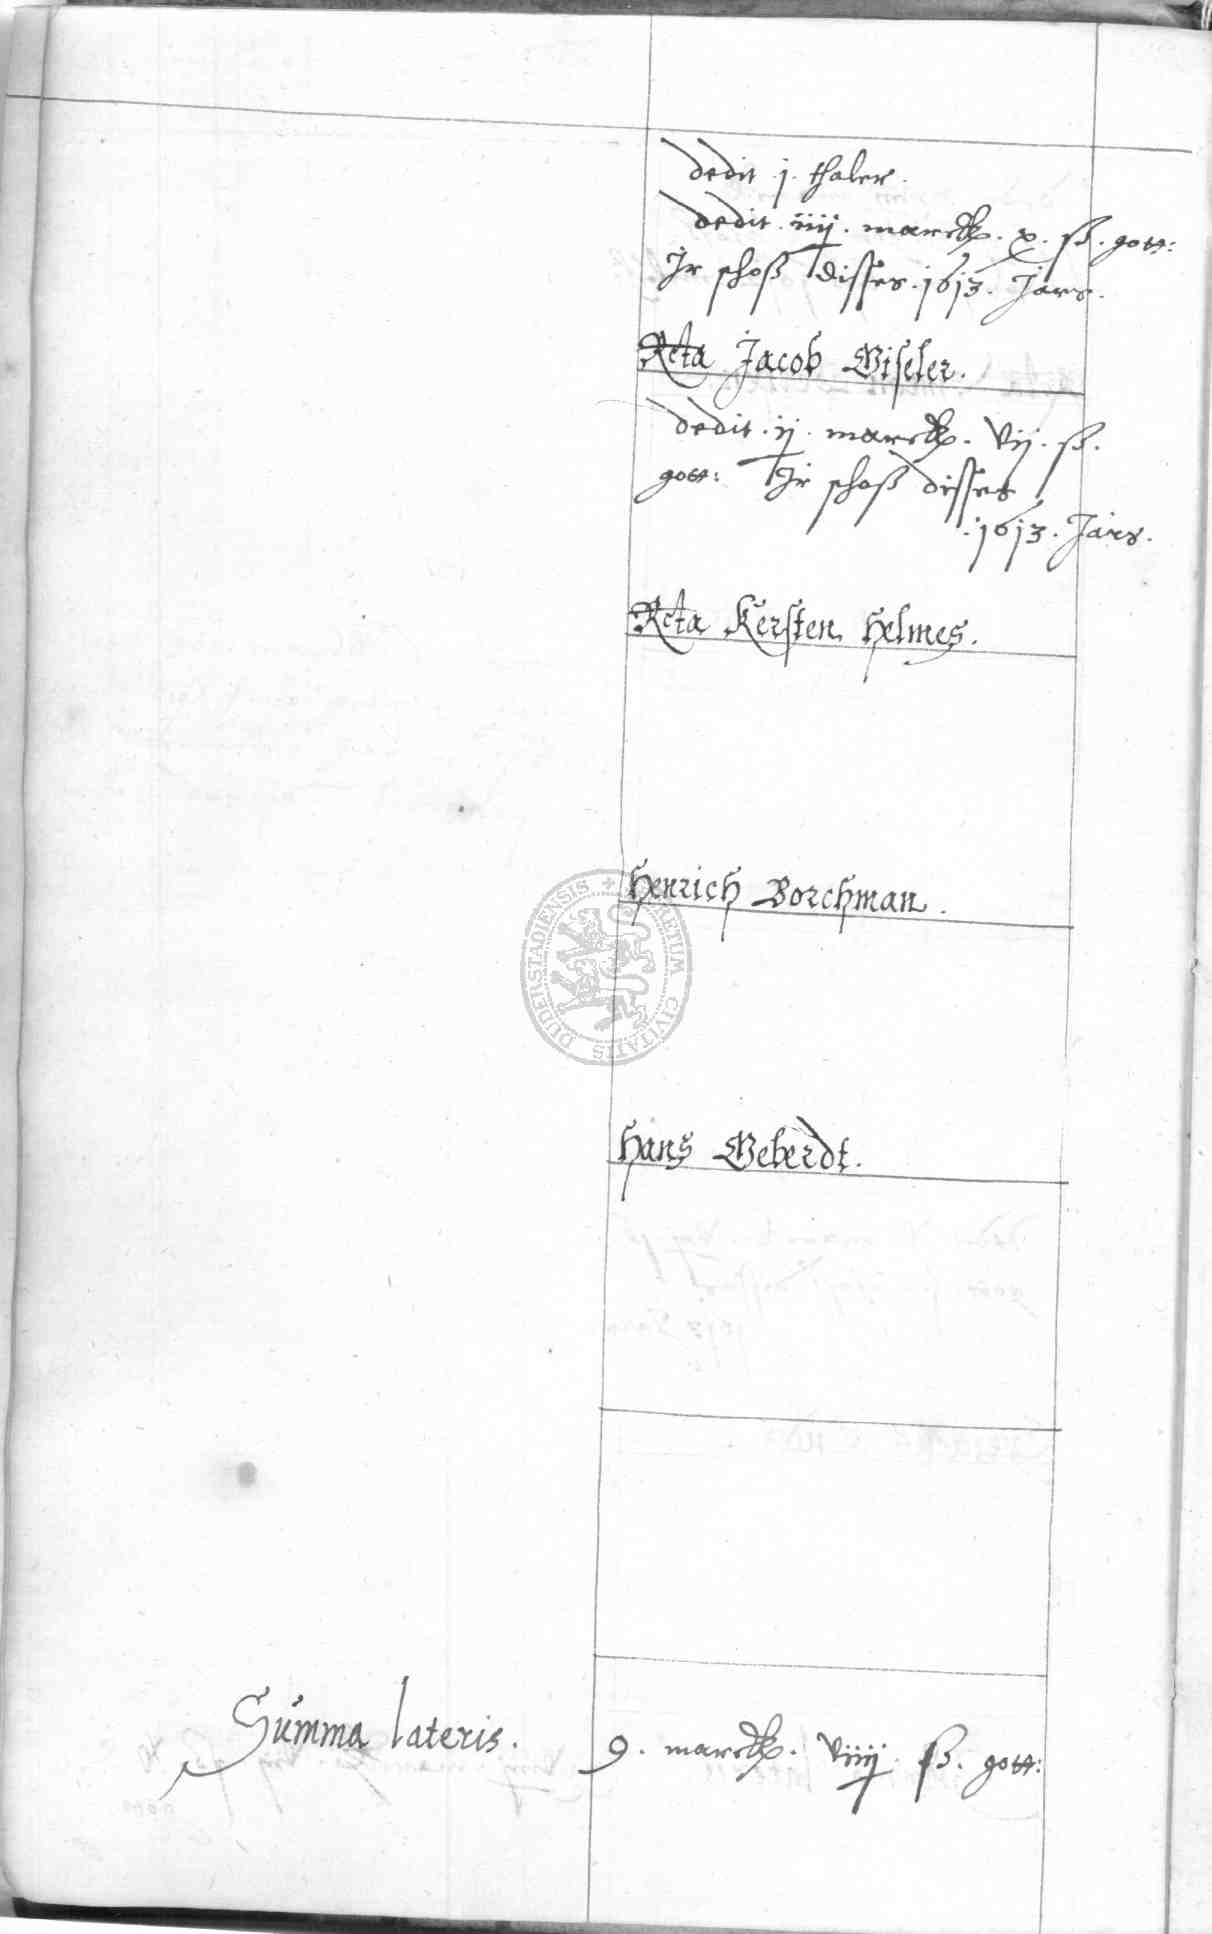 dedit .j. thaler.
dedit .iiij. marck. x. ß. gott:
Jr schoß disses .1613. Jars.
Rcta Jacob Wiseler.
dedit .ij. marck. vij. ß.
gott: Jr schoß disses
.1613. Jars.
Rcta Kersten Helmes.
Henrich Borchman.
Hans Weberdt.
SIGILLUM SECRETUM CIVITATIS DUDERSTADIENSIS
Summa lateris. 9. marck. viiij. ß. gott: